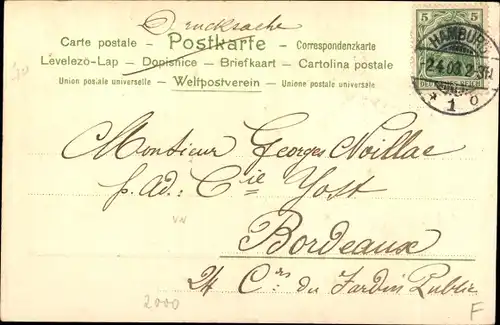 Drucksache
Carte postale – Postkarte – Correspondenzkarte
Levelező-Lap – Dopisnice – Briefkaart – Cartolina postale
Union postale universelle – Weltpostverein – Unione postale universale
5 5
DEUTSCHES REICH
HAMBURG
-2.4.03.2-3N.
* 1 o
Monsieur Georges Noillac
p. Ad: Cie Yost
Bordeaux
24 Crs du Jardin Public
2000
F